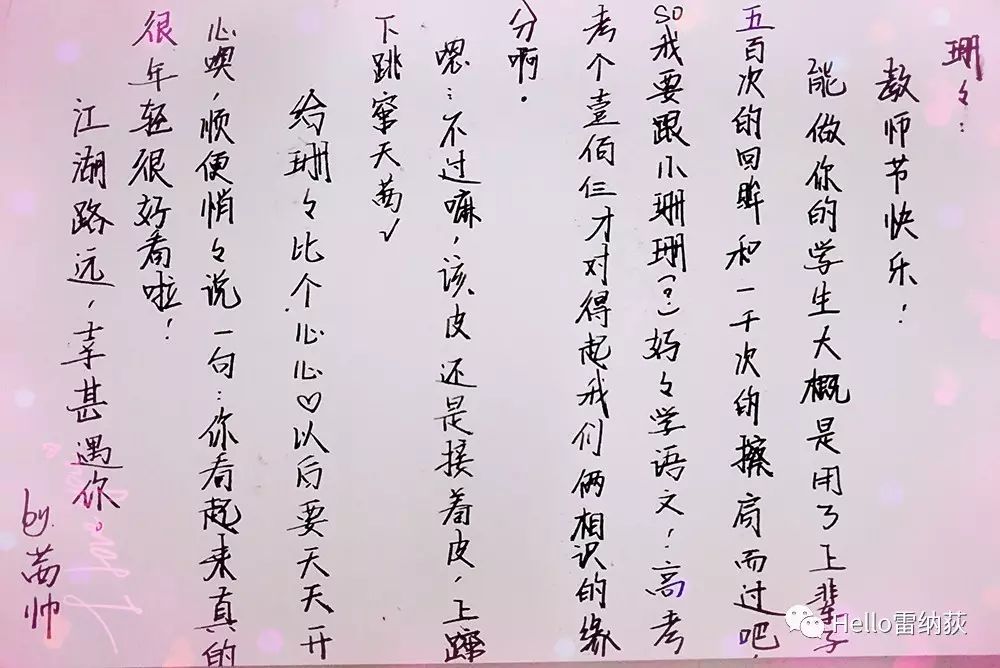 珊々:
教师节快乐!
能做你的学生大概是用了上辈子
五百次的回眸和一千次的擦肩而过吧!
so我要跟小珊珊(?)好々学语文!高考
考个壹佰仨才对得起我们俩相识的缘
分啊.
嗯:不过嘛,该皮还是接着皮,上蹿
下跳窜天茜√
给珊々比个心心♡以后要天天开
心噢,顺便悄々说一句:你看起来真的
很年轻很好看啦!
江湖路远,幸甚遇你
by.茜帅
Hello雷纳荻